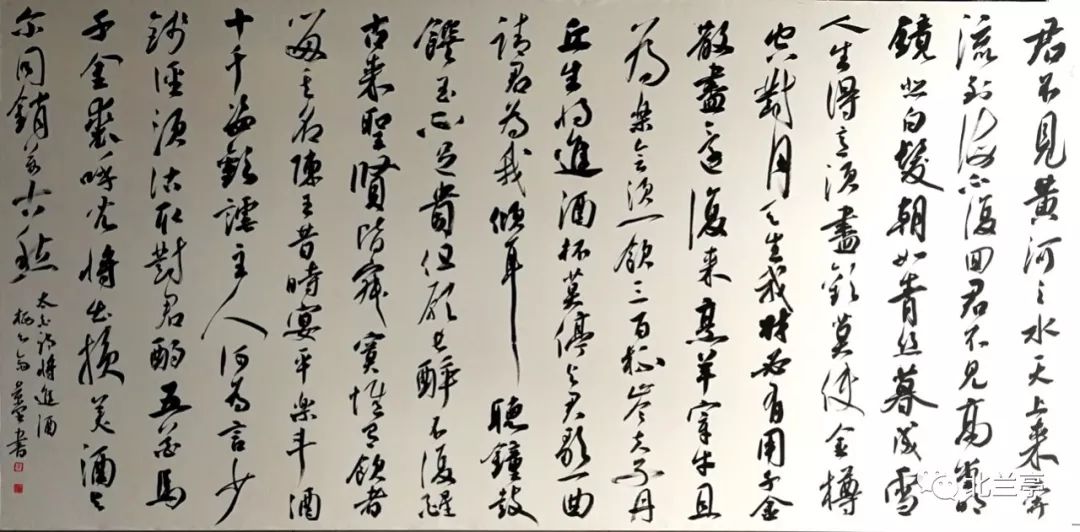 君不見黄河之水天上来奔
流到海不復回君不見高堂明
鏡悲白髮朝如青丝暮成雪
人生得意須盡歡莫使金樽
空對月天生我材必有用千金
散盡還復来烹羊宰牛且
為樂會須一飲三百杯岑夫子丹
丘生將進酒杯莫停与君歌一曲
請君為我傾耳聽鐘鼓
饌玉不足貴但願長醉不復醒
古来聖賢皆寂寞惟有飲者
留其名陳王昔時宴平樂斗酒
十千恣歡謔主人何為言少
錢徑須沽取對君酌五花馬
千金裘呼兒將出換美酒与
尔同銷萬古愁
太白詩將進酒
書
北兰亭